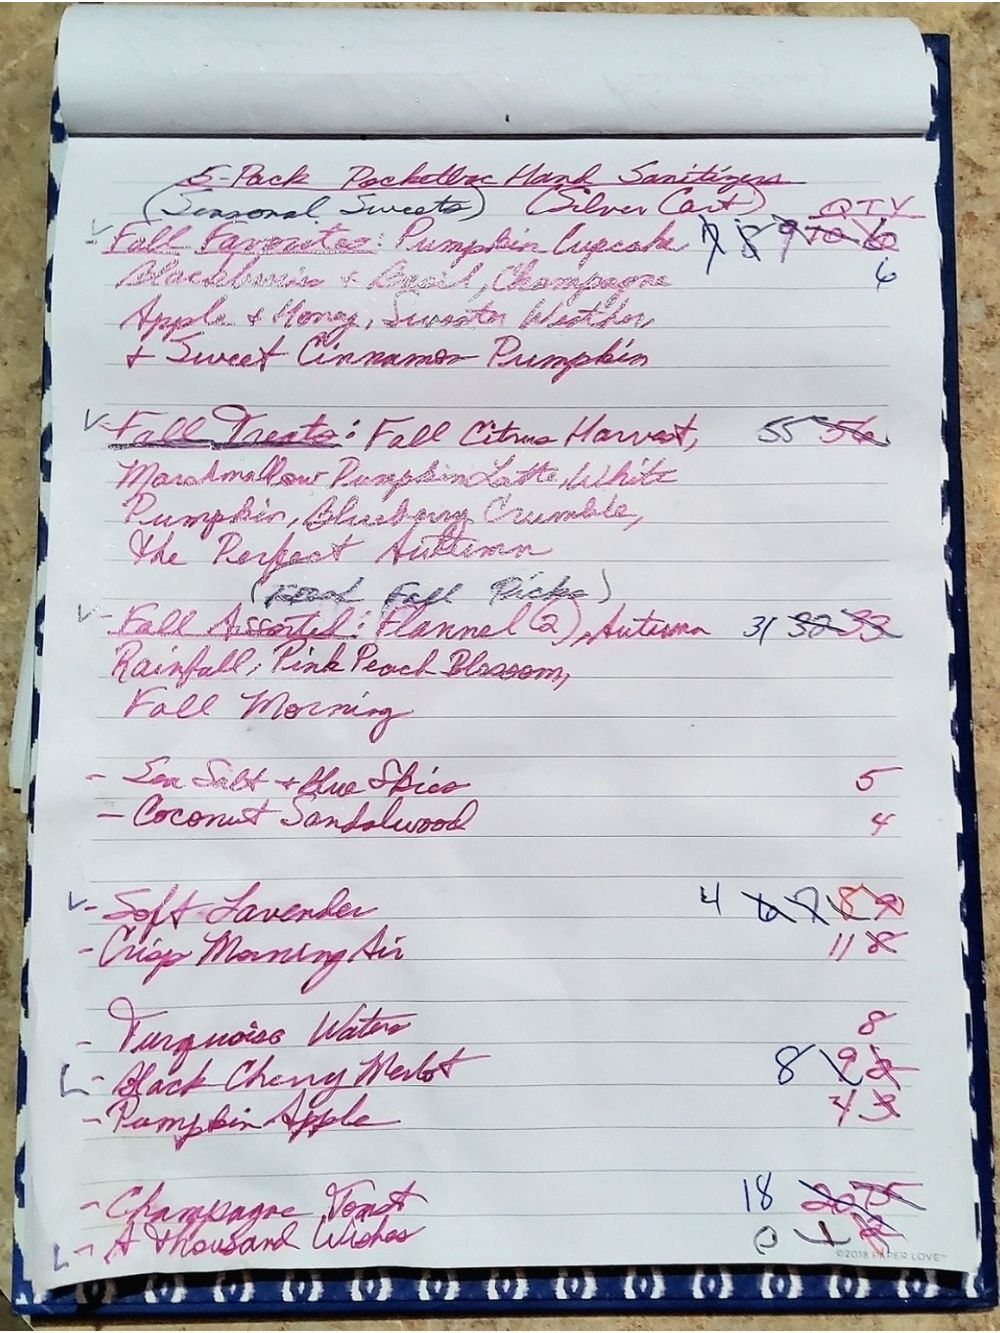 5-Pack Pocketbac Hand Sanitizers
(Seasonal Sweets) (Silver Cart) QTY
- Fall Favorites: Pumpkin Cupcake 7 8 9 10 6
Blackberries + Basil, Champagne 6
Apple & Honey, Sweater Weather,
+ Sweet Cinnamon Pumpkin
- Fall Treats: Fall Citrus Harvest, 55 56
Marshmallow Pumpkin Latte, White
Pumpkin, Blueberry Crumble,
the Perfect Autumn
( Fall Picks)
- Fall Assorted: Flannel (2), Autumn 31 32 33
Rainfall, Pink Peach Blossom,
Fall Morning
- Sea Salt + Blue Skies 5
- Coconut Sandalwood 4
- Soft Lavender 4 6 7 8 9
- Crisp Morning Air 11 8
- Turquoise Waters 8
- Black Cherry Merlot 8 9
- Pumpkin Apple 4 3
- Champagne Toast 18 20
- A Thousand Wishes 0 1 2
©2018 PAPER LOVE™